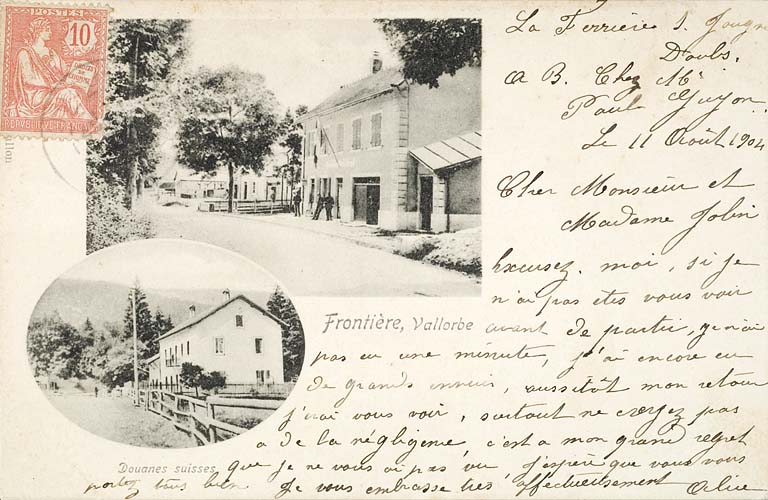 POSTES
10
REPUBLIQUE FRANÇAISE
La Ferrière s. Jougne
Doubs.
A B. Chez Mr
Paul Guyon
Le 11 Août 1904
Cher Monsieur et
Madame Jolin
Excusez. moi, si je
n'ai pas etes vous voir
avant de partir, je n'ai
pas eu une minute, j'ai encore eu
de grands ennuis, aussitôt mon retour
j'irai vous voir, surtout ne croyez pas
a de la négligence, c'est a mon grand regret
que je ne vous ai pas vu J'espère que vous vous
portez tous bien. Je vous embrasse très affectueusement Alice
Frontière, Vallorbe
Douanes suisses